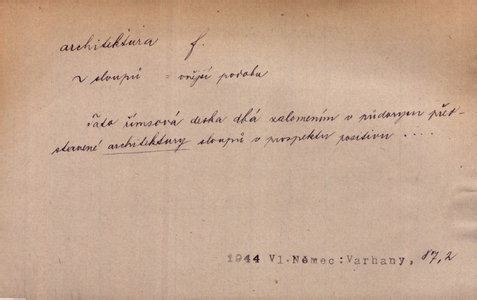 architektura f.
~ sloupů = vnější podoba
Tato římsová deska dbá zalomením v půdorysu před-
stavené architektury sloupů v prospektu positivu ....
1944 Vl.Němec:Varhany, 87,2